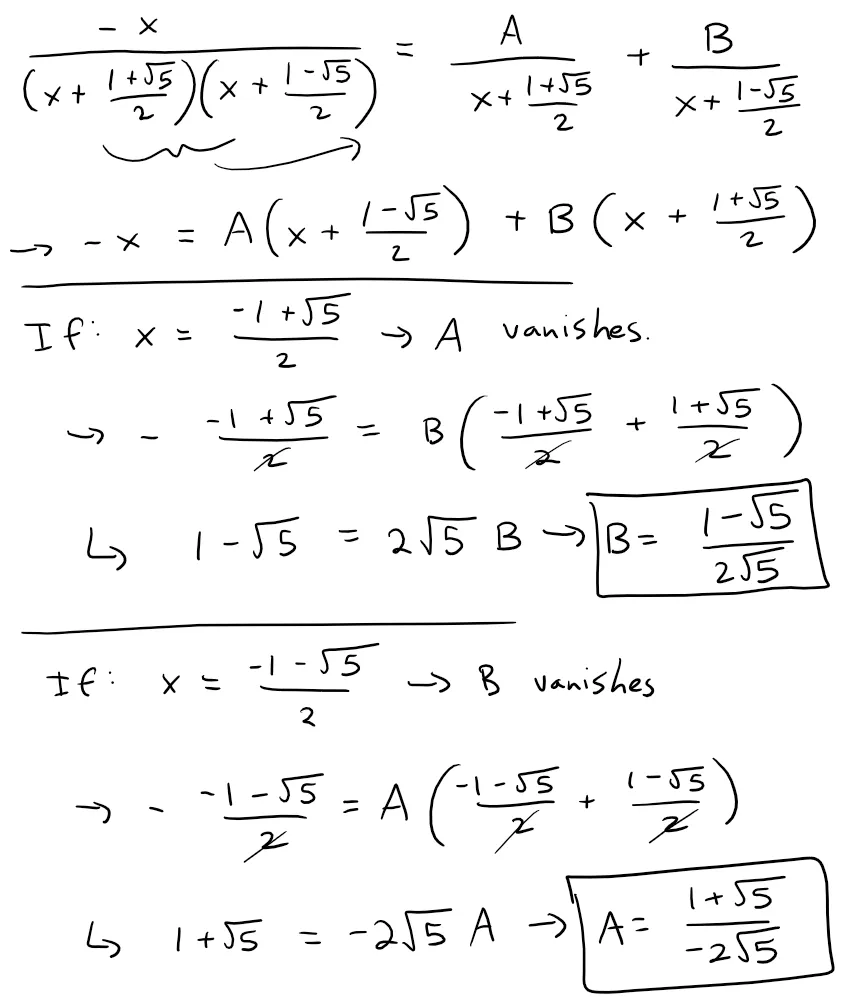 -x / ((x + (1+√5)/2)(x + (1-√5)/2)) = A / (x + (1+√5)/2) + B / (x + (1-√5)/2)
→ -x = A(x + (1-√5)/2) + B(x + (1+√5)/2)
If: x = (-1+√5)/2 → A vanishes.
→ - (-1+√5)/2 = B((-1+√5)/2 + (1+√5)/2)
↳ 1-√5 = 2√5 B → B = (1-√5)/(2√5)
If: x = (-1-√5)/2 → B vanishes
→ - (-1-√5)/2 = A((-1-√5)/2 + (1-√5)/2)
↳ 1+√5 = -2√5 A → A = (1+√5)/(-2√5)